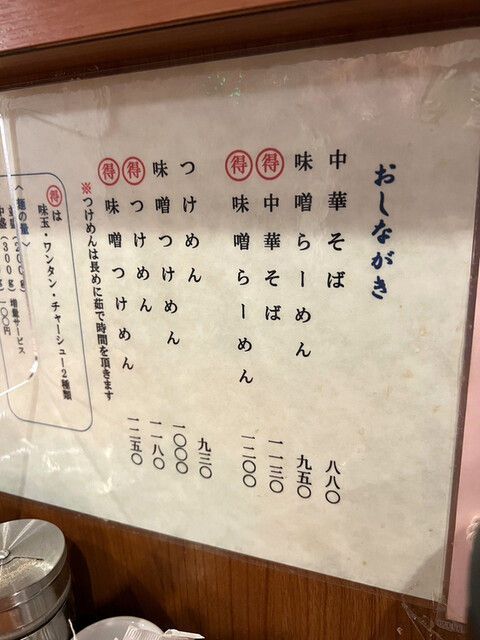 おしながき
中華そば 八八〇
味噌らーめん 九五〇
得 中華そば 一一三〇
得 味噌らーめん 一二〇〇
つけめん 九三〇
味噌つけめん 一〇〇〇
得 つけめん 一一八〇
得 味噌つけめん 一二五〇
※つけめんは長めに茹で時間を頂きます
得は
味玉・ワンタン・チャーシュー2種類
〈麺の量〉
(200g) 増量サービス
中盛(300g) 一〇〇円